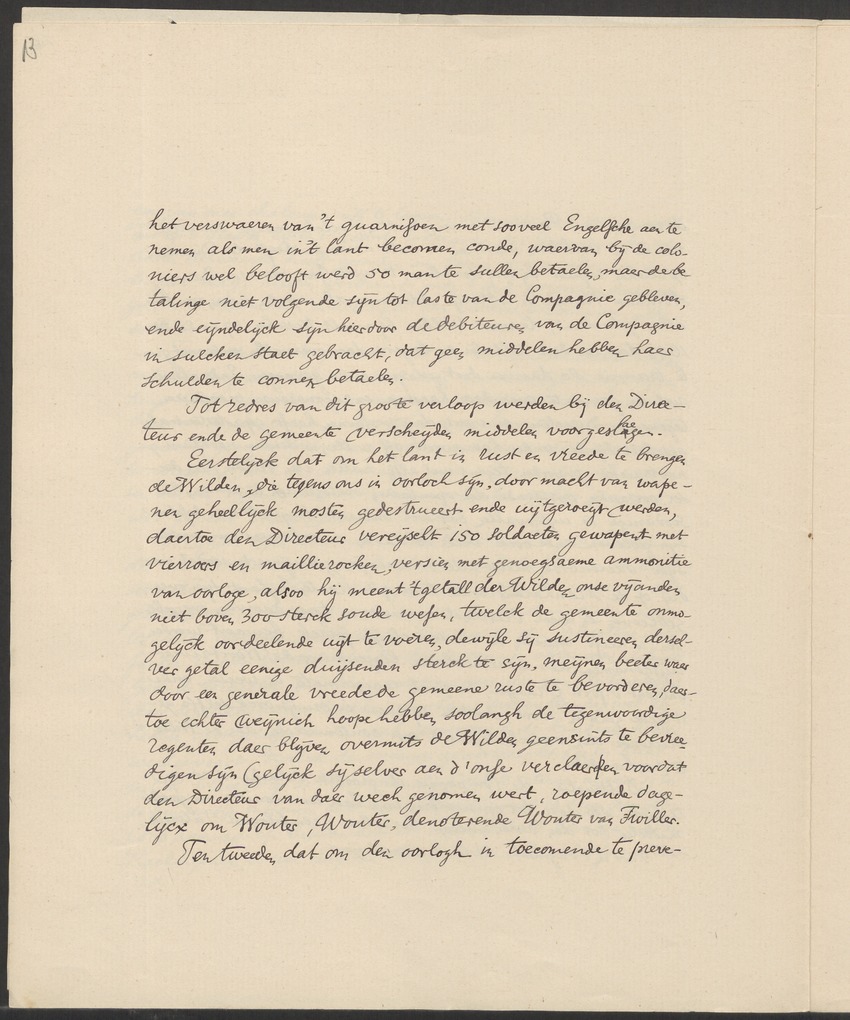 13
het verswaeren van 't guarnisoen met sooveel Engelsche aen te
nemen als men in't lant becomen conde, waervan bij de colo-
niers wel belooft werd 50 man te sullen betaelen, maer de be
talinge niet volgende sijn tot laste van de Compagnie gebleven,
ende eijndelijck sijn hierdoor de debiteuren van de Compagnie
in sulcken staet gebracht, dat geen middelen hebben haer
schulden te connen betaelen.
Tot redres van dit groote verloop werden bij den Direc-
teur ende de gemeente verscheijden middelen voorgeslagen.
Eerstelijck dat om het lant in rust en vreede te brengen
de Wilden, die tegens ons in oorloch sijn, door macht van wape-
nen geheelijck mosten gedestrueert ende uijtgeroeijt werden,
daertoe den Directeur vereijscht 150 soldaeten gewapent met
vierroers en maillierocken, versien met genoegsaeme ammonitie
van oorloge, alsoo hij meent 't getall der Wilden onse vijanden
niet boven 300 sterck soude wesen, twelck de gemeente onmo-
gelijck oordeelende uijt te voeren, dewijle sij sustineeren dersel-
ver getal eenige duijsenden sterck te sijn, meijnen beeter waer
door een generale vreede de gemeene ruste te bevorderen, daer-
toe echter weijnich hoope hebben soolangh de tegenwoordige
regenten daer blijven overmits de Wilden geensints te bevree
digen sijn (gelijck sij selver aen d'onse verclaerden voordat
den Directeur van daer wech genomen wert, roepende dage-
lijcx om Wouter, Wouter, denoterende Wouter van Twiller.
Ten tweeden dat om den oorlogh in toecomende te preve-